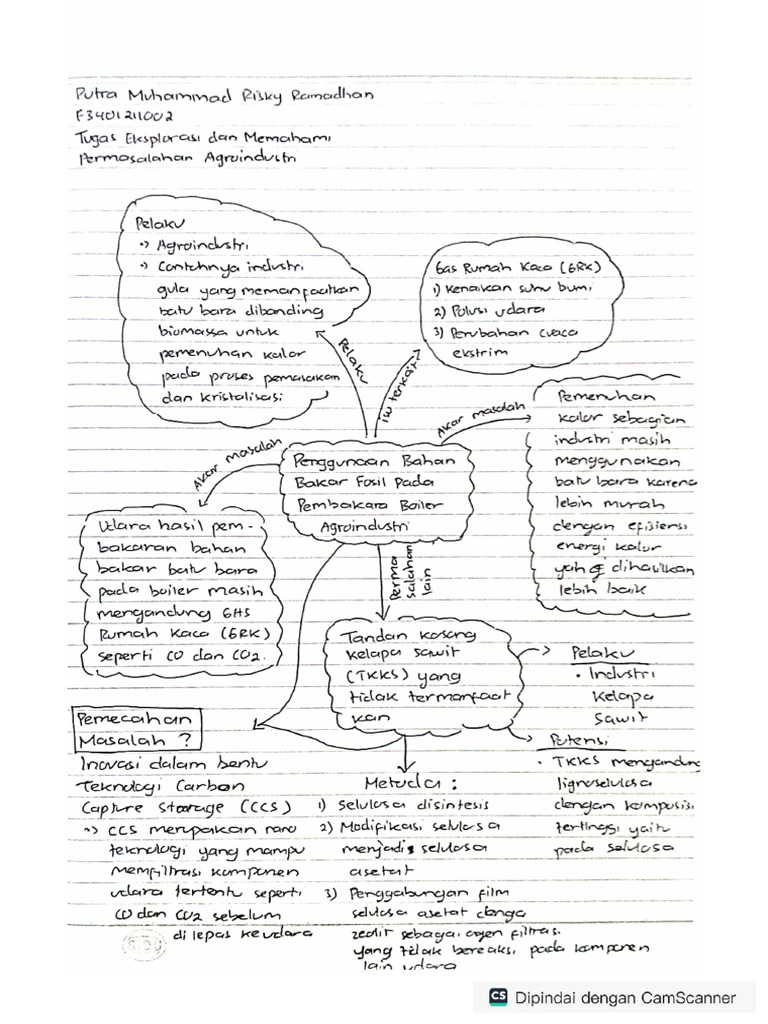 Putra Muhammad Risky Ramadhan
F3401211002
Tugas Eksplorasi dan Memahami
Permasalahan Agroindustri
Pelaku
•) Agroindustri
•) Contohnya industri
gula yang memanfaatkan
batu bara dibanding
biomassa untuk
pemenuhan kalor
pada proses pemasakan
dan kristalisasi
Gas Rumah Kaca (GRK)
1) Kenaikan suhu bumi
2) Polusi udara
3) Perubahan cuaca
ekstrim
Pelaku
Isu terkait
Akar masalah
Pemenuhan
kalor sebagian
industri masih
menggunakan
batu bara karena
lebih murah
dengan efisiensi
energi kalor
yang dihasilkan
lebih baik
Akar masalah
Penggunaan Bahan
Bakar Fosil Pada
Pembakara Boiler
Agroindustri
Udara hasil pem-
bakaran bahan
bakar batu bara
pada boiler masih
mengandung GHS
Rumah Kaca (GRK)
seperti CO dan CO2.
Perma
salahan
lain
Tandan kosong
kelapa sawit
(TKKS) yang
tidak termanfaat
kan
Pelaku
• Industri
Kelapa
Sawit
Potensi
• TKKS mengandung
lignoselulosa
dengan komposisi
tertinggi yaitu
pada selulosa
Pemecahan
Masalah ?
Inovasi dalam bentu
Teknologi Carbon
Capture Storage (CCS)
•) CCS merupakan nano
teknologi yang mampu
memfiltrasi komponen
udara tertentu seperti
CO dan CO2 sebelum
di lepas ke udara
Metode :
1) Selulosa disintesis
2) Modifikasi selulosa
menjadi selulosa
asetat
3) Penggabungan film
selulosa asetat denga
zeolit sebagai agen filtrasi
yang tidak bereaksi pada komponen
lain udara
CS Dipindai dengan CamScanner